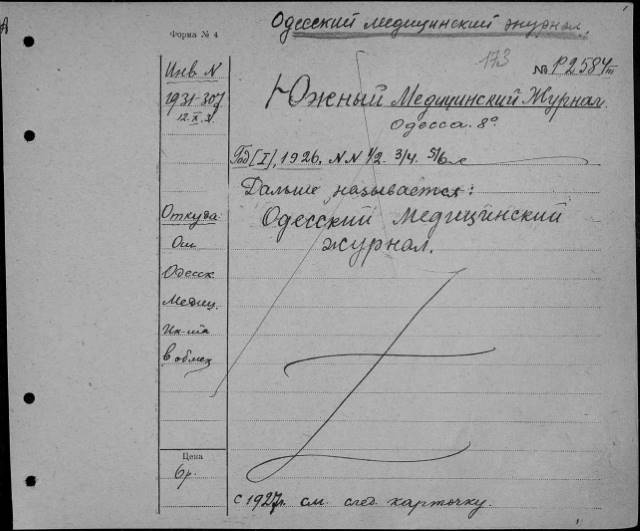 Одесский медицинский журнал.
Форма № 4
173
№ Р2584 III
Инв N
1931-307
12.X.
Южный Медицинский Журнал.
Одесса. 8°
Год [I], 1926, NN 1/2. 3/4. 5/6
Дальше называется:
Откуда
Одесский медицинский
журнал.
От
Одесск
Медиц.
Ин-та
в обмен
Цена
6р.
с 1927г. см. след. карточку.